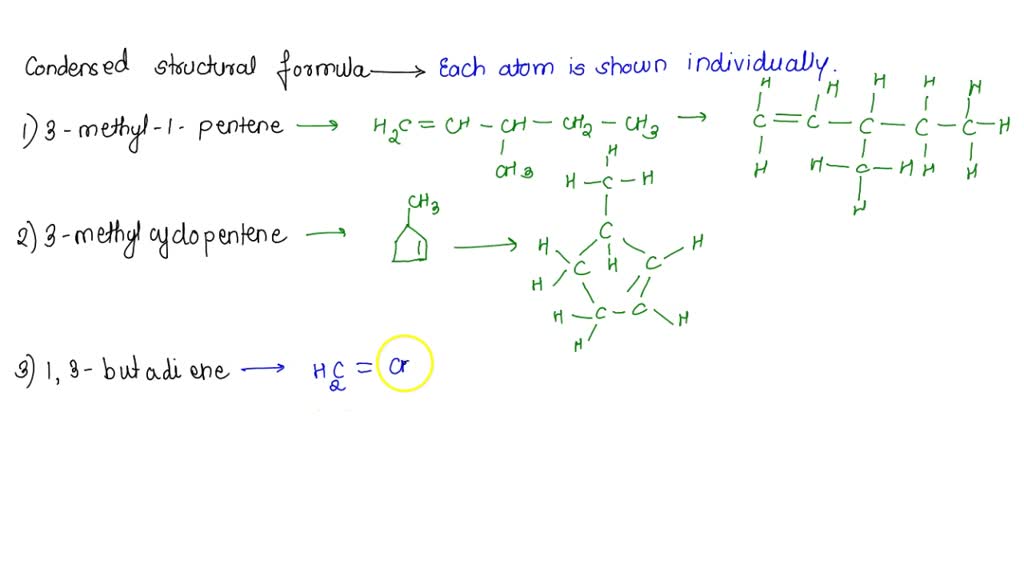 Condensed structural formula → Each atom is shown individually.
1) 3-methyl-1-pentene → H2C = CH - CH - CH2 - CH3 →
CH3
H H H H H
C = C - C - C - C - H
H H - C - H H H
H
2) 3-methyl cyclopentene → CH3 →
H
H - C - H
C
H C H C H
H
H - C - C H
H
3) 1,3-butadiene → H2C =